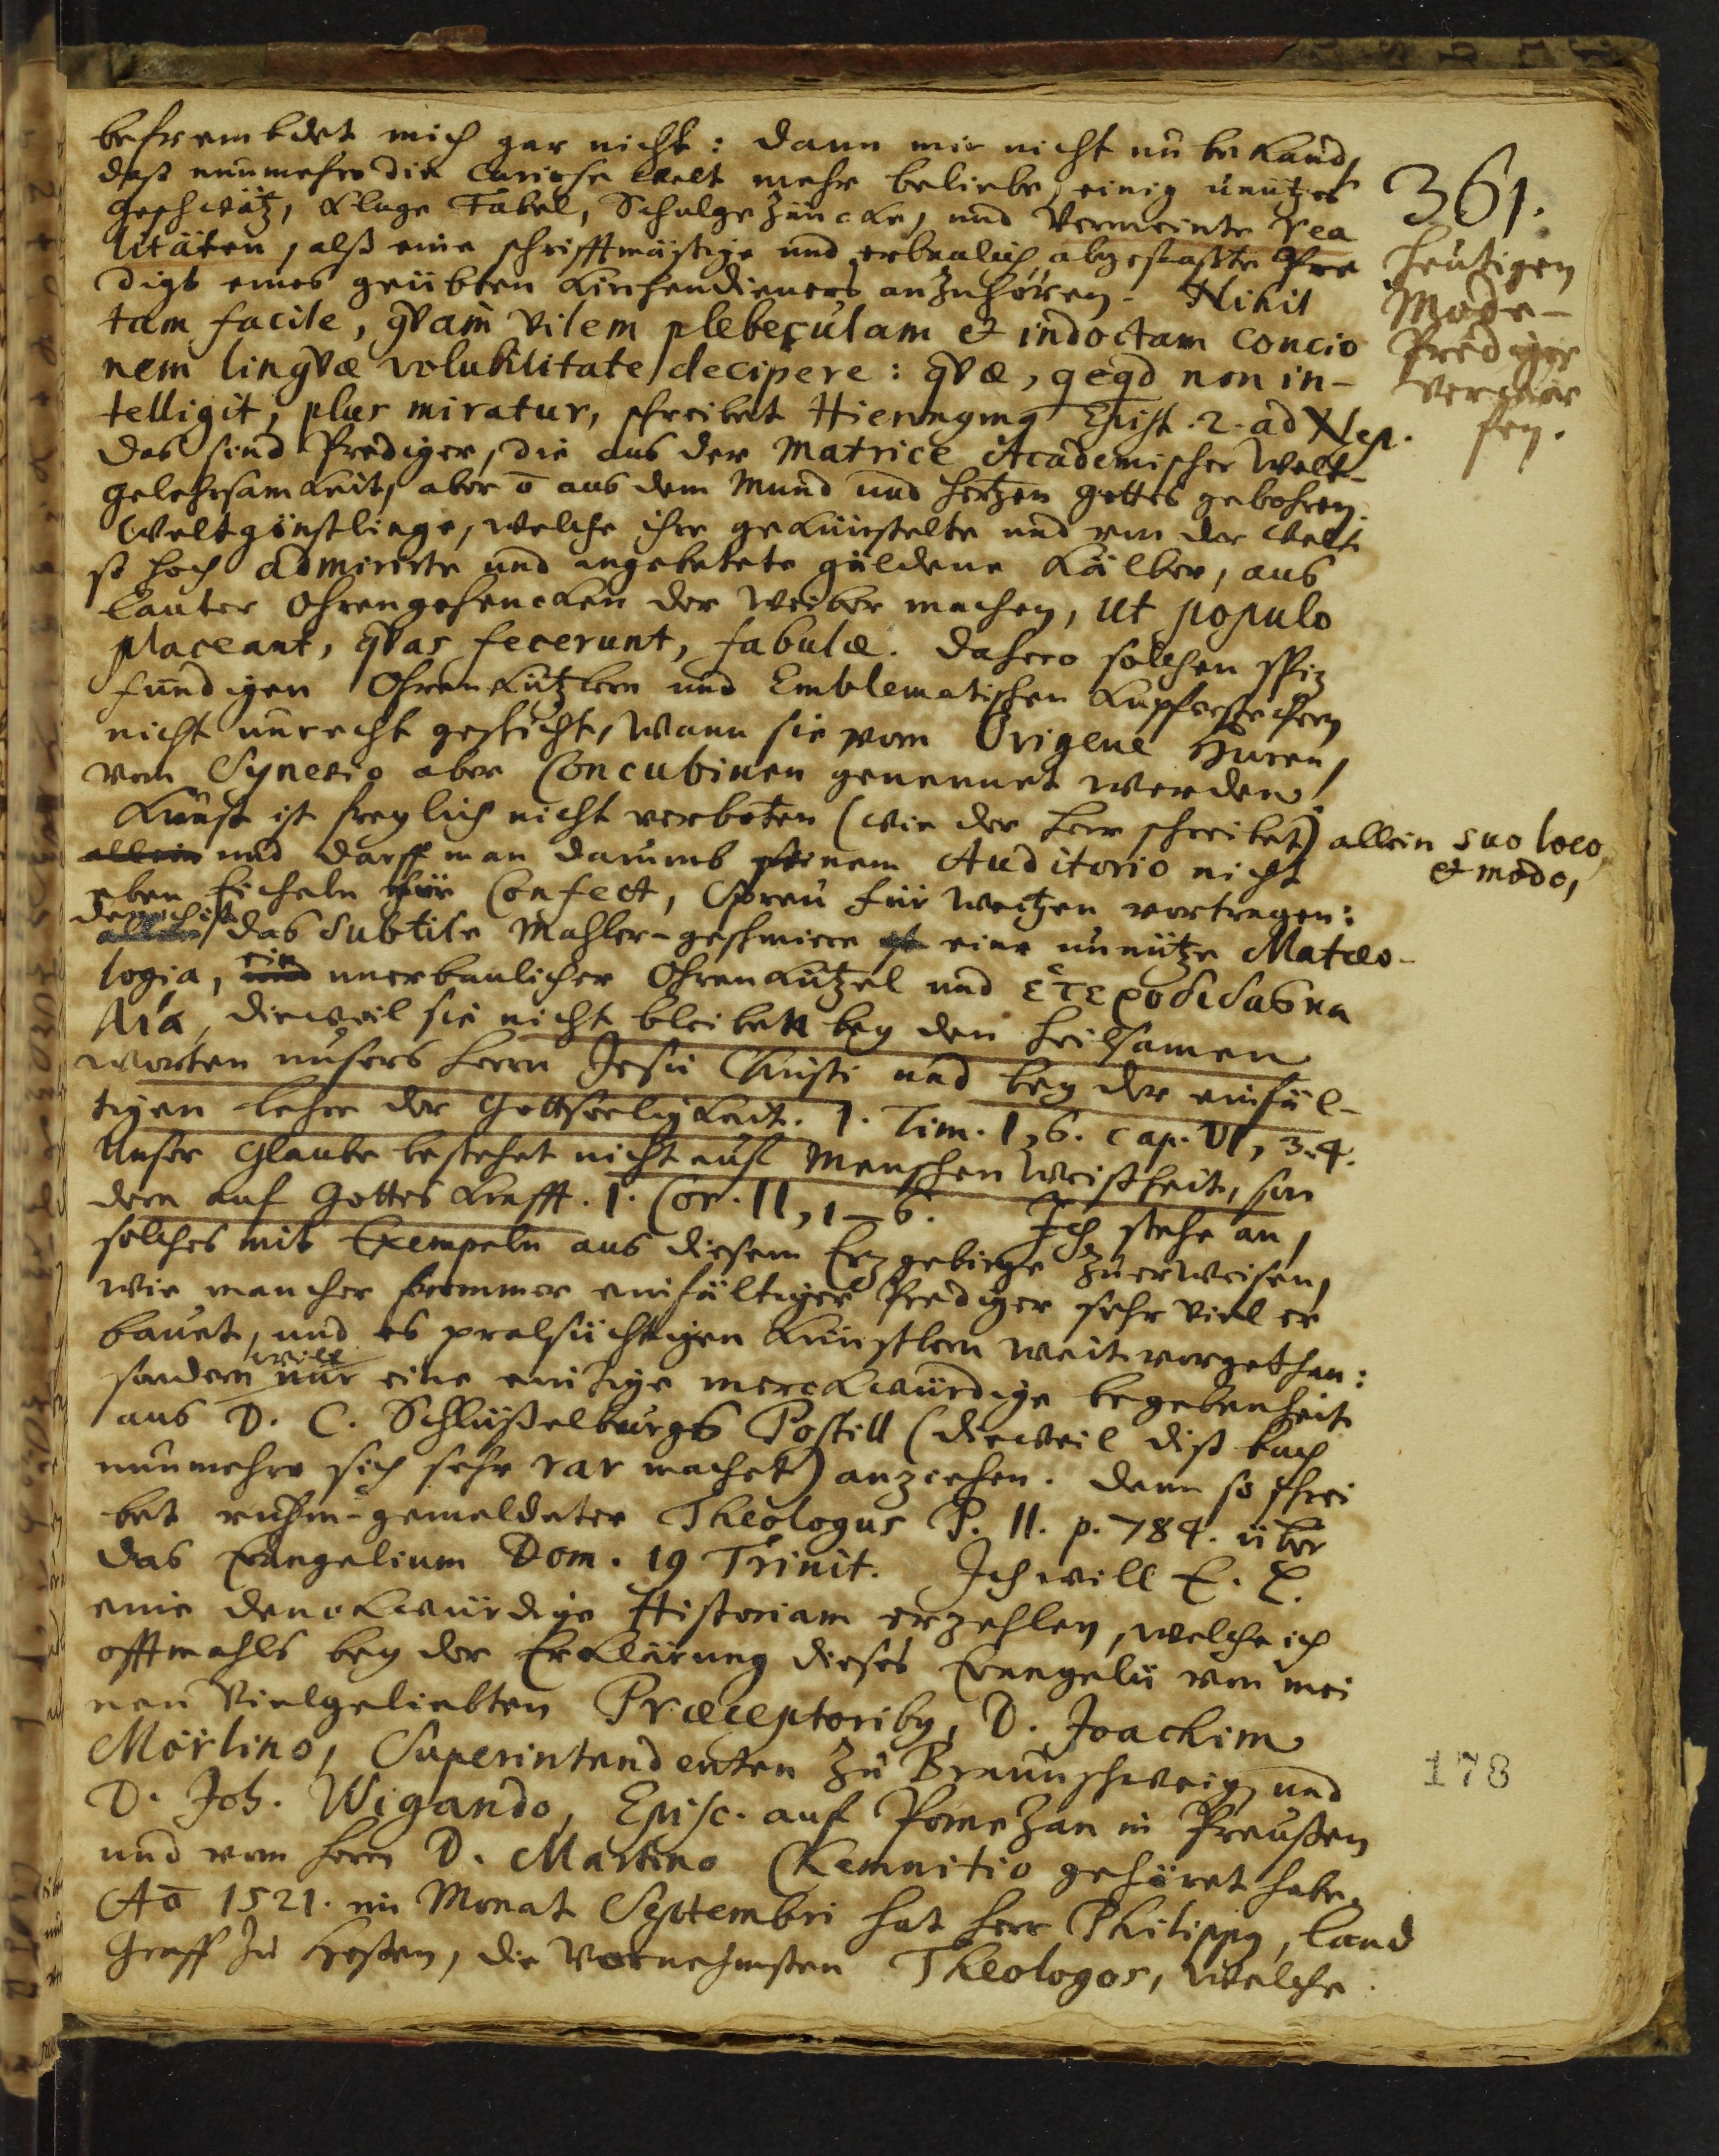 befrembdet mich gar nicht: dann mir nicht unbekand,
daß nunmehro die Curiose Welt mehr beliebe, einig unützes
geschwätz, kluge Fabel, Schulgezäncke, und vermeinte Rea
litäten, alß eine schrifftmäsige und erbaulich abgefaßte Pre
digt eines geübten Kirchendieners anzuhören. Nihil
tam facile, qvam vilem plebeculam et indoctam concio
nem lingvæ volubilitate decipere: qvæ, qcqd non in-
telligit, plus miratur, schreibet Hieronymq Epist. 2. ad Nep.
das sind Prediger, die aus der Matrice Academischer Welt-
gelehrsamkeit, aber ō aus dem Mund und Hertzen Gottes gebohren.
Weltgünstlinge, welche ihre gekünstelte und von der Welt
so hoch admirirte und angebetete güldene Kälber, aus
lauter Ohrengehencken der Weiber machen, ut populo
placeant, qvas fecerunt, fabulæ. Dahero solchen spiz
fündigen Ohrenkützlern und Emblematischen Kupferstechern
nicht unrecht geschicht, wann sie vom Origene Huren,
vom Synesio aber Concubinen genennet werden!
Kunst ist freylich nicht verboten (wie der Herr schreibet) allein suo loco
et modo,
allein und darff man darumb seinem Auditorio nicht
eben Eicheln für Confect, Spreu für Weitzen vortragen:
dennoch ist
das subtile Mahler-geschmiere ist eine unnütze Matæo-
logia, ein unerbaulicher Ohrenkützel und ἑτεροδιδασκα
λία, dieweil sie nicht bleiben bey den heilsamen
worten unsers Herrn Jesu Christi und bey der einfäl-
tigen lehre der Gottseeligkeit. 1. Tim. I, 6. cap. VI, 3. 4.
Unser Glaube bestehet nicht auf Menschen Weißheit, son
dern auf Gottes Krafft. 1. Cor. II, 1–6. Ich stehe an,
solches mit Exempeln aus diesem Erzgebirge zuerweisen,
wie mancher frommer einfältiger Prediger sehr viel er
bauet, und es pralsüchtigen Künstlern weit vorgethan:
will
sondern nur eine einzige merckwürdige begebenheit
aus D. C. Schlüßelburgs Postill (dieweil diß buch
nunmehro sich sehr rar machet) anziehen. Denn so schrei
bet ruhm-gemeldeter Theologus P. II. p. 784. über
das Evangelium Dom. 19 Trinit. Ich will E. L.
eine denckwürdige Historiam erzehlen, welche ich
offtmahls bey der Erklärung dieses Evangelii von mei
nen Vielgeliebten Præceptoribq, D. Joachim
Mörlino, Superintendenten zu Braunschweig und
D. Joh. Wigando, Episc. auf Pomezan in Preußen
und vom Herrn D. Martino Chemnitio gehöret habe.
Aō 1521. im Monat Septembri hat Herr Philippq, Land
Graff zu Heßen, die Vornehmsten Theologos, welche
361.
Heutigen
Mode-
Prediger
verwor
fen.
178